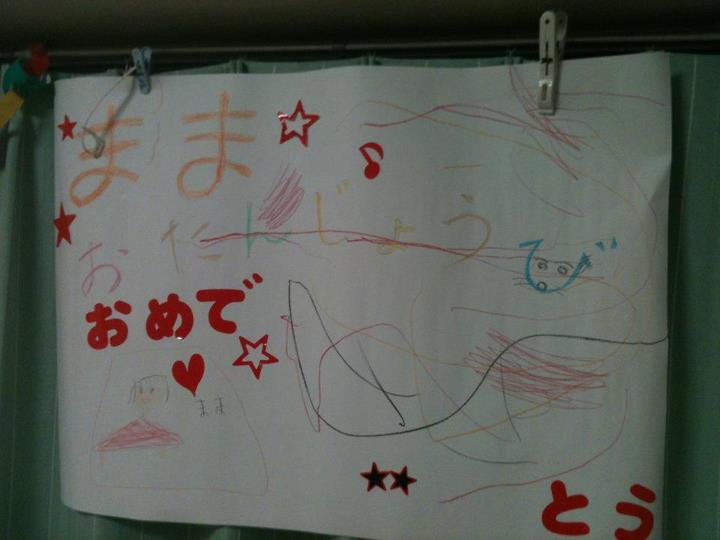 まま
おたんじょうび
おめで
まま
とう